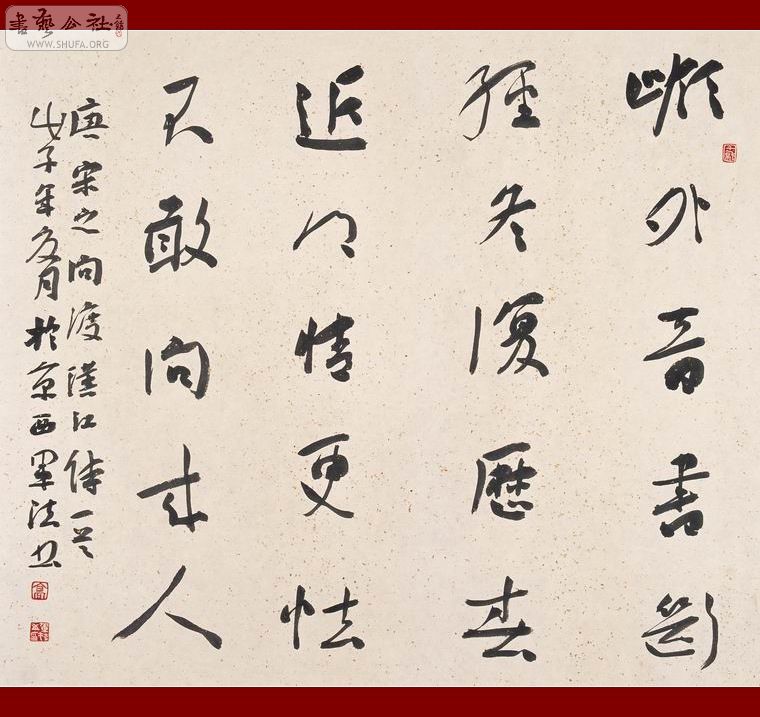 嶺外音書斷
經冬復歷春
近鄉情更怯
不敢問來人
唐宋之問渡漢江詩一首
戊子年夏月於京西軍法書
書藝公社
WWW.SHUFA.ORG